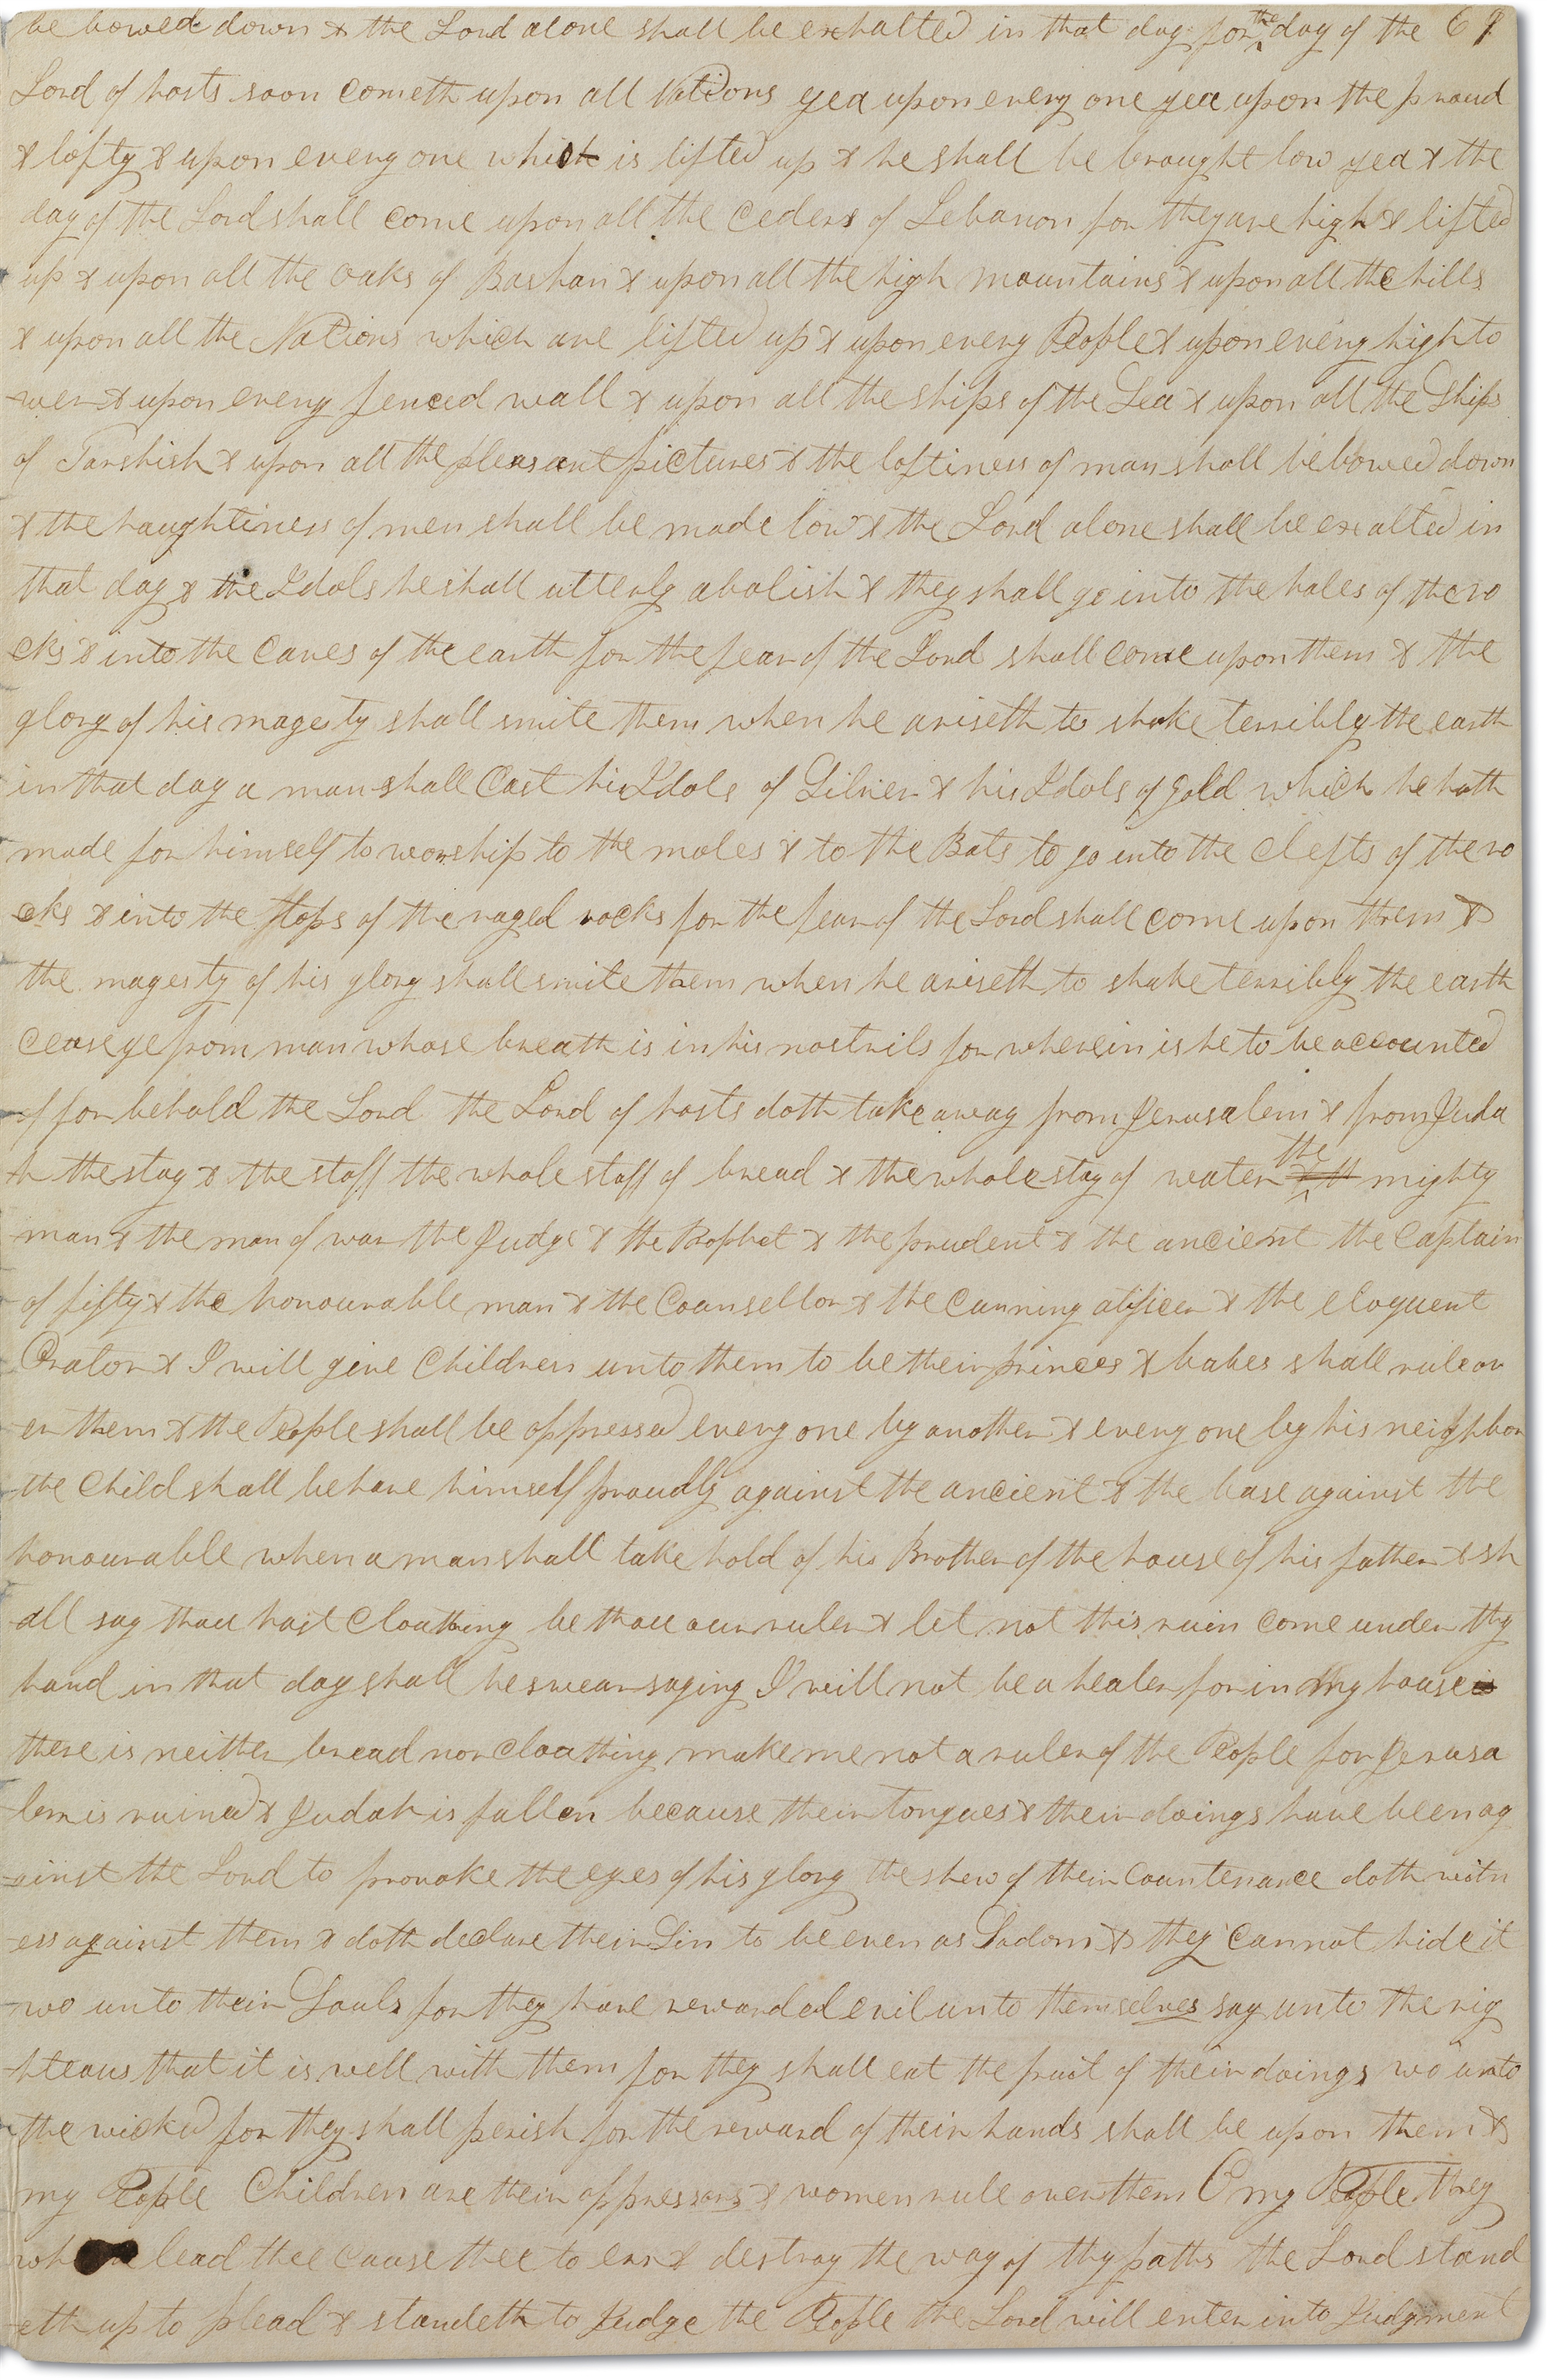 be bowed down & the Lord alone shall be exhalted in that day for the day of the 69
Lord of hosts soon cometh upon all Nations yea upon every one yea upon the proud
& lofty & upon every one which is lifted up & he shall be brought low yea & the
day of the Lord shall come upon all the ceders of Lebanon for they are high & lifted
up & upon all the oaks of Bashan & upon all the high mountains & upon all the hills
& upon all the Nations which are lifted up & upon every People & upon every high to
wer & upon every fenced wall & upon all the ships of the Sea & upon all the Ships
of Tarshish & upon all the pleasant pictures & the loftiness of man shall be bowed down
& the haughtiness of men shall be made low & the Lord alone shall be exalted in
that day & the Idols he shall utterly abolish & they shall go into the holes of the ro
cks & into the caves of the earth for the fear of the Lord shall come upon them & the
glory of his magesty shall smite them when he ariseth to shake terribly the earth
in that day a man shall Cast his Idols of Silver & his Idols of gold which he hath
made for himself to worship to the moles & to the Bats to go into the clefts of the ro
cks & into the tops of the raged rocks for the fear of the Lord shall come upon them &
the magesty of his glory shall smite them when he ariseth to shake terribly the earth
cease ye from man whose breath is in his nostrils for wherein is he to be accounted
of for behold the Lord the Lord of hosts doth take away from Jerusalem & from Juda
h the stay & the staff the whole staff of bread & the whole stay of water the mighty
man & the man of war the Judge & the Prophet & the prudent & the ancient the captain
of fifty & the honourable man & the Counsellor & the cunning atificer & the eloquent
Orator & I will give Children unto them to be their princes & babes shall rule ov
er them & the People shall be oppressed every one by another & every one by his neighbor
the Child shall behave himself proudly against the ancient & the base against the
honourable when a man shall take hold of his Brother of the house of his father & sh
all say thou hast cloathing be thou our ruler & let not this ruin come under thy
hand in that day shall he swear saying I will not be a healer for in my house
there is neither bread nor cloathing make me not a ruler of the People for Jerusa
lem is ruined & Judah is fallen because their tongues & their doings have been ag
ainst the Lord to provoke the eyes of his glory the shew of their countenance doth witn
ess against them & doth declare their Sin to be even as Sodom & they cannot hide it
wo unto their Souls for they have rewarded evil unto themselves say unto the rig
hteous that it is well with them for they shall eat the fruit of their doings wo unto
the wicked for they shall perish for the reward of their hands shall be upon them &
my People Children are their oppressors & women rule over them O my People they
who lead thee cause thee to err & destroy the way of thy paths the Lord stand
eth up to plead & standeth to Judge the People the Lord will enter into Judgment